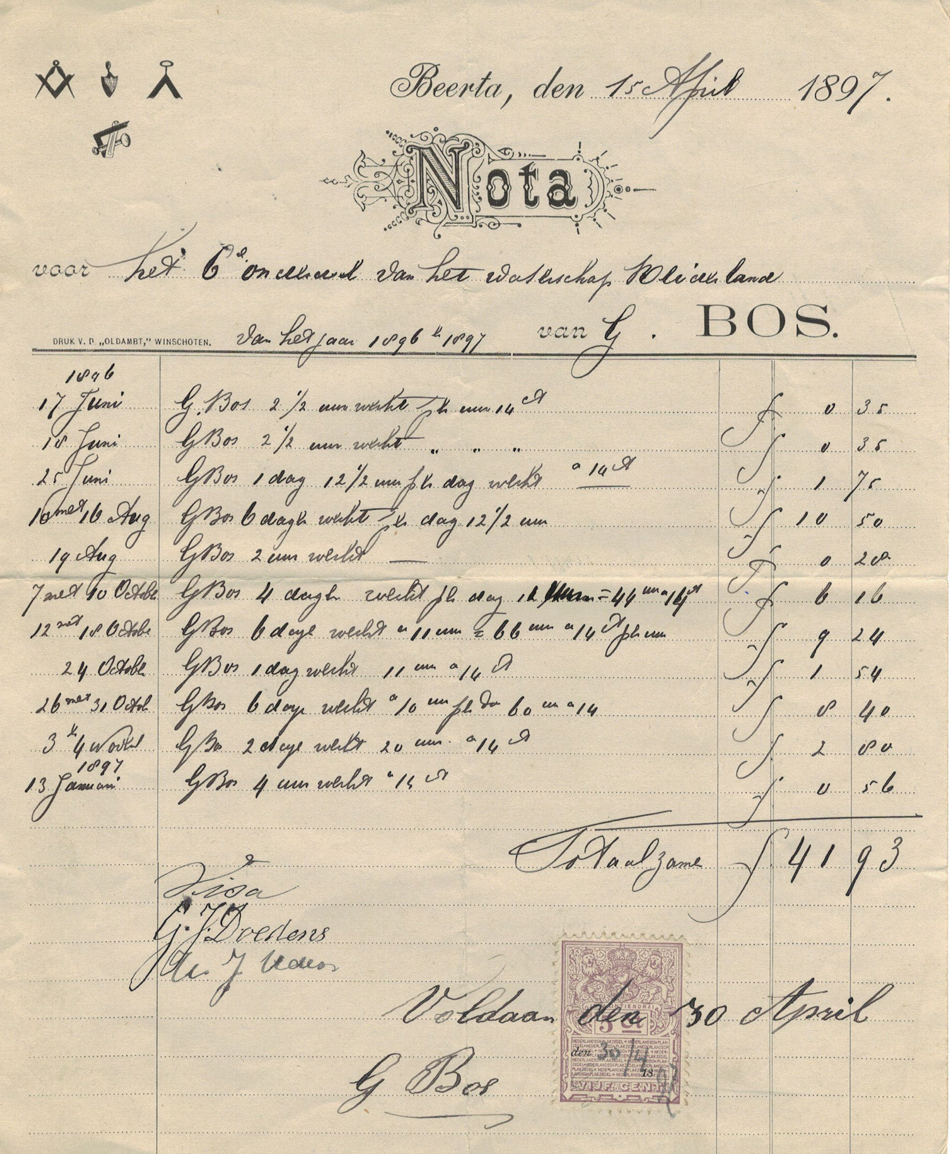 Beerta, den 15 April 1897.
Nota
voor het 6e onderdeel van het waterschap Reiderland
DRUK V. D. „OLDAMBT,” WINSCHOTEN.
van het jaar 1896 tt 1897 van G. BOS.
1896
17 Juni G. Bos 2 1/2 uur werkt per uur 14 ct f 0 35
18 Juni G Bos 2 1/2 uur werkt " " " f 0 35
25 Juni G Bos 1 dag 12 1/2 uur per dag werkt a 14 ct f 1 75
10 met 16 Aug G Bos 6 dagen werkt per dag 12 1/2 uur f 10 50
19 Aug G Bos 2 uur werkt — f 0 28
7 met 10 October G Bos 4 dagen werkt per dag 11 = 44 uur a 14 ct f 6 16
12 met 18 October G Bos 6 dage werkt a 11 uur = 66 uur a 14 ct per uur f 9 24
24 October G Bos 1 dag werkt 11 uur a 14 ct f 1 54
26 met 31 Octob G Bos 6 dage werkt a 10 uur per da 60 uur a 14 f 8 40
3 tt 4 Novbr G Bo 2 dage werkt 20 uur a 14 ct f 2 80
1897
13 Januari G Bos 4 uur werkt a 14 ct f 0 56
Totaal zame f 41 93
Visa
G. J. Dvedens
Voldaan den 30 April
5 ct
den 30/4 18
VIJF CENT
G Bos